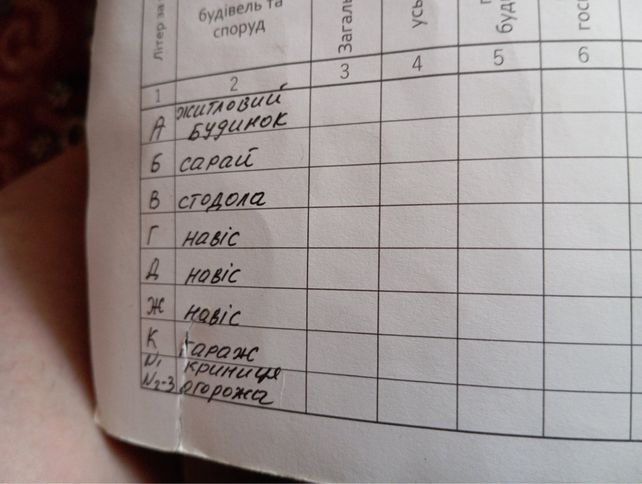 Літер за
будівель та
споруд
Загаль
усь
буд
госп
1 2 3 4 5 6
А житловий
будинок
Б сарай
В стодола
Г навіс
Д навіс
Ж навіс
К гараж
N1 криниця
N2-3 огорожа